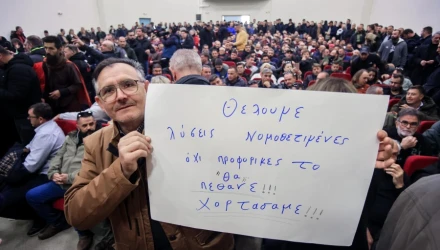 Θελουμε
λύσεις Νομοθετιμένες
όχι προφορικες το
"Θα,
ΠΕΘΑΝΕ!!!
Χορτασαμε!!!